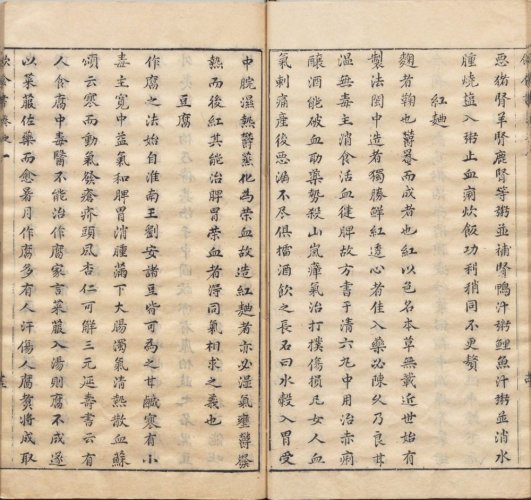 惡猪腎羊腎鹿腎等粥並補腎鴨汁粥鯉魚汁粥並消水
腫燒鹽入粥止血痢炊飯功利稍同不更贅
紅麯
麴者鞠也欝罨而成者也紅以色名本草無載近世始有
製法閩中造者獨勝鮮紅透心者佳入藥必陳久乃良甘
溫無毒主消食活血健脾故方書于清六丸中用治赤痢
釀酒能破血助藥勢殺山嵐瘴氣治打撲傷損凡女人血
氣刺痛産後惡漏不尽俱擂酒飲之長石曰水穀入胃受
中脘濕熱欝蒸化為荣血故造紅麯者亦必溫氣壅欝發
熱而後紅其能治脾胃荣血者得同氣相求之義也
豆腐
作腐之法始自淮南王劉安諸豆皆可為之甘鹹寒有小
毒主寬中益氣和脾胃消腫滿下大腸濁氣清熱散血蘇
頌云寒而動氣發瘡疥頭風杏仁可解三元延壽書云有
人食腐中毒醫不能治作腐家言萊菔入湯則腐不成遂
以萊菔佐藥而愈暑月作腐多有人汗傷人腐煑将成取